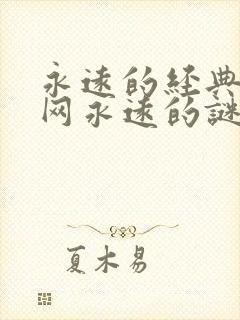 永远的经典
网永远的謎
夏木易